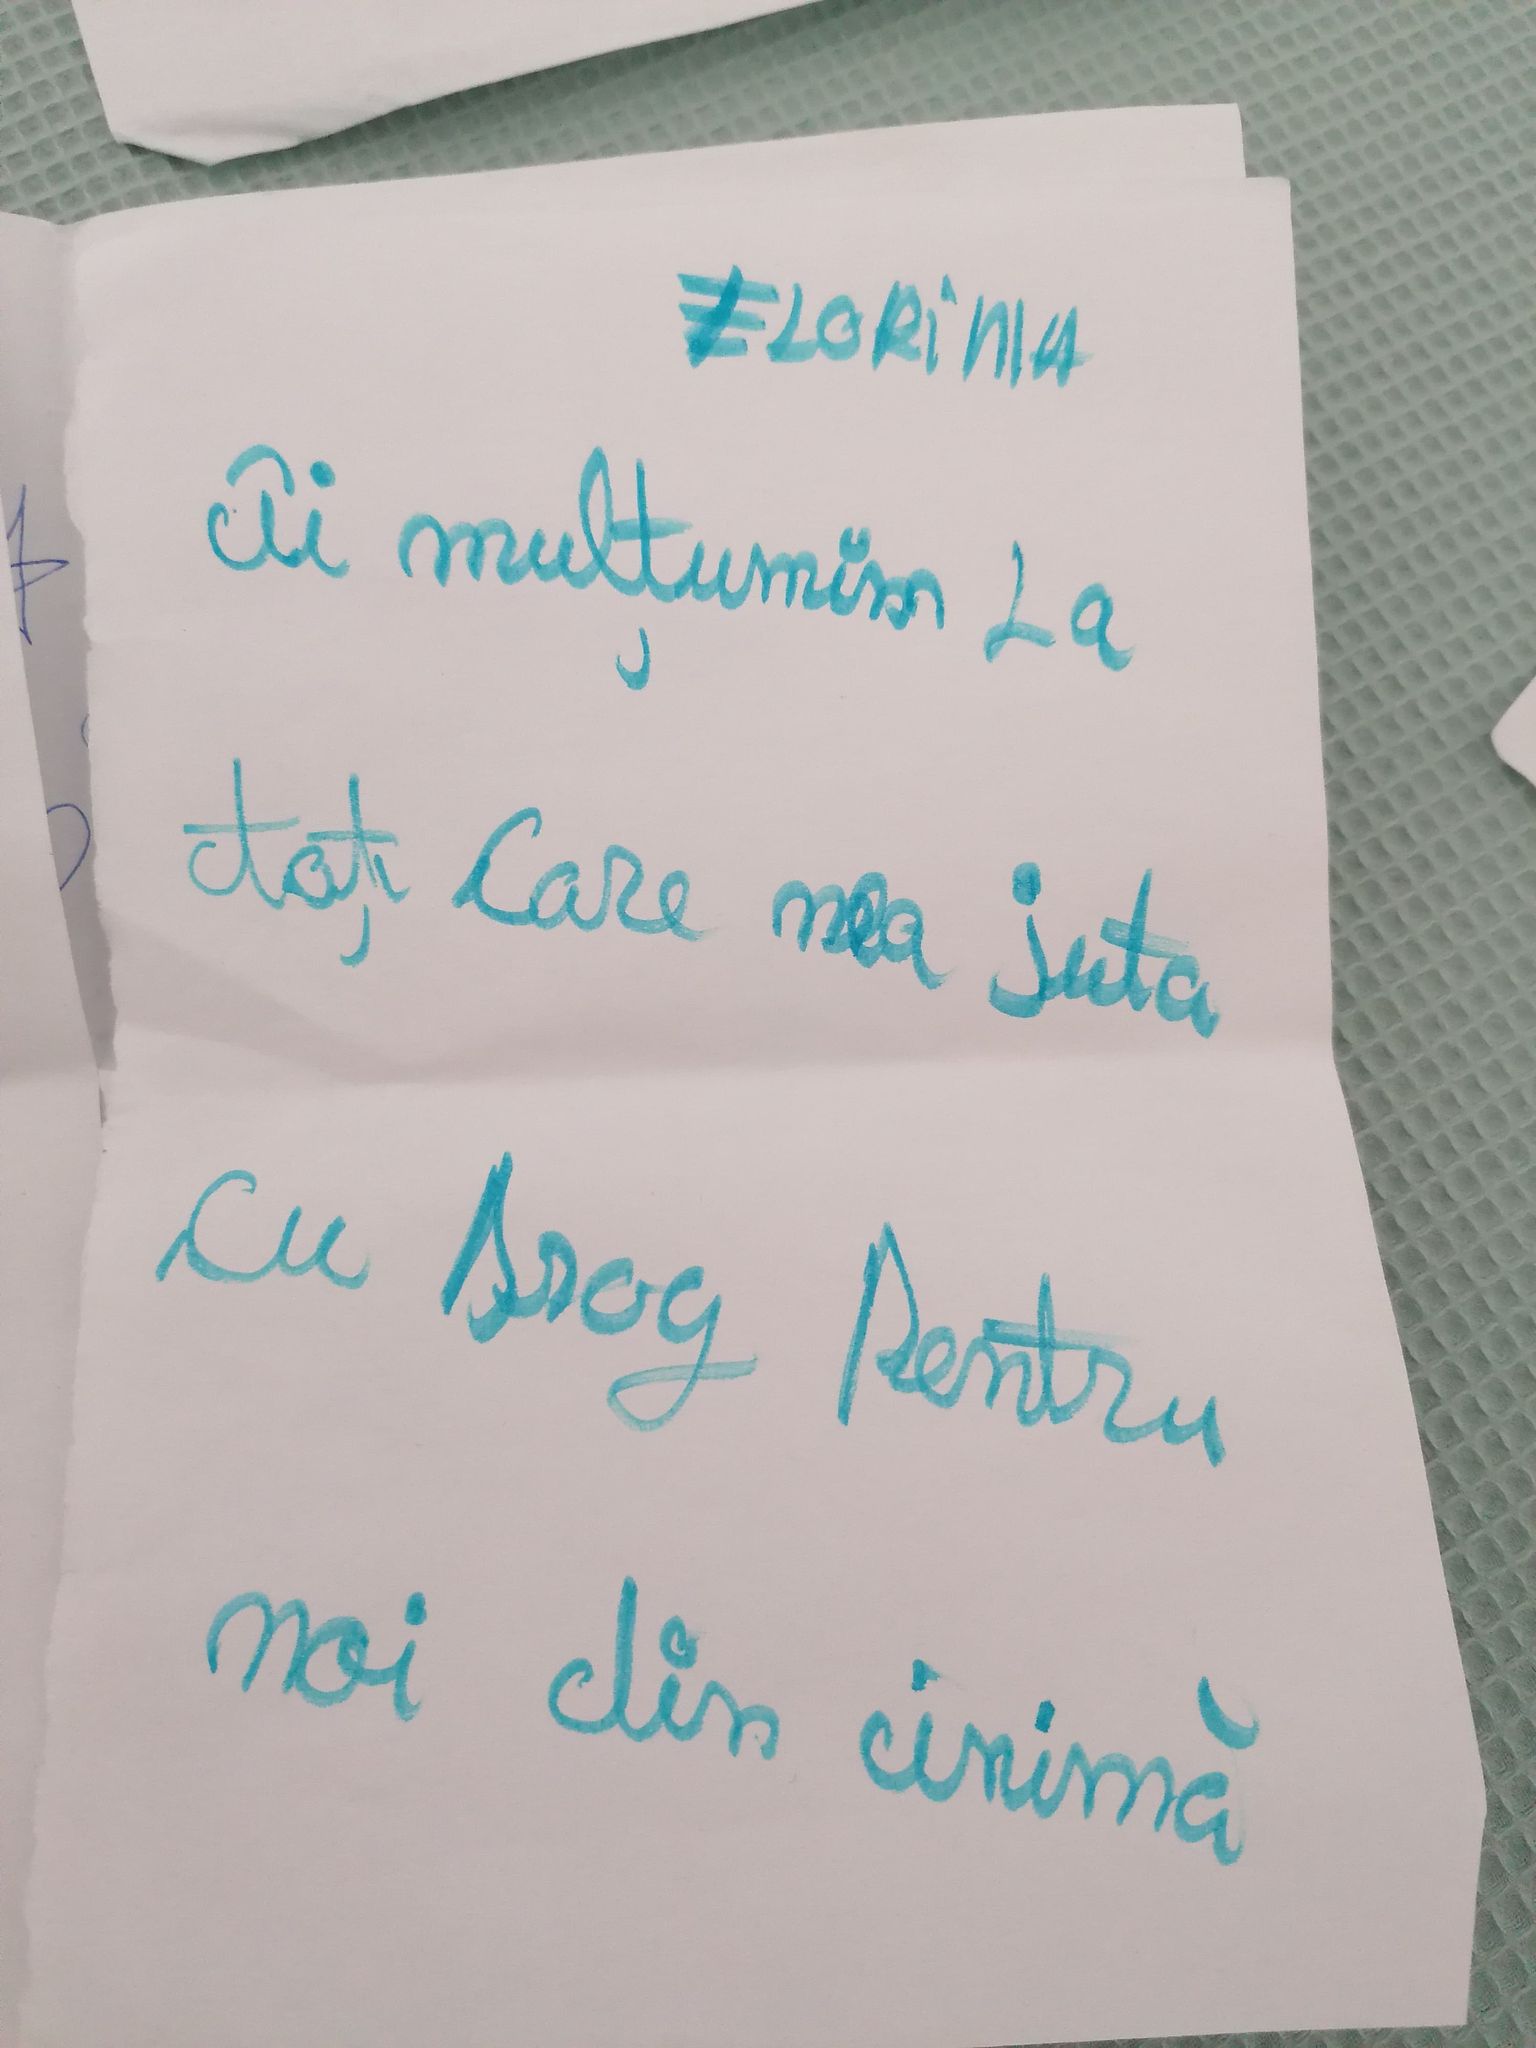 FLORINA
Âi mulțumim La
toți Care nea juta
Cu Drog Pentru
noi din inimă